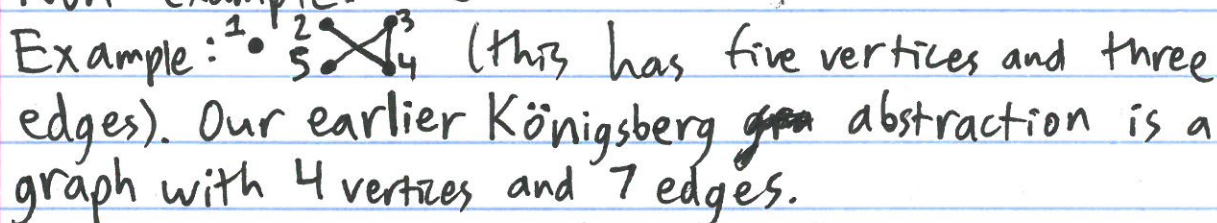 Example: 1 2 3 5 4 (this has five vertices and three
edges). Our earlier Königsberg abstraction is a
graph with 4 vertices and 7 edges.